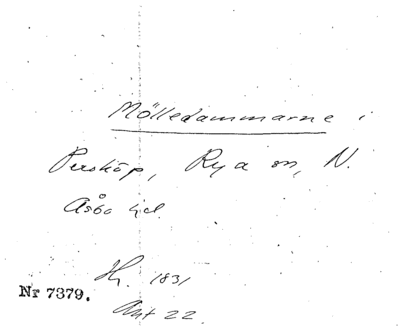 Mölledammarne i
Perstorp, Rya sn, N.
Åsbo hd.
Hy. 1831
Nr 7379.
Akt 22.